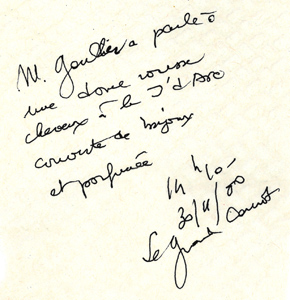 M. Gaultier a parlé à
une dame rousse
cheveux à la J. d'Arc
couverte de bijoux
et parfumée
14 h 10 -
30/11/00
Le Grand Carnot